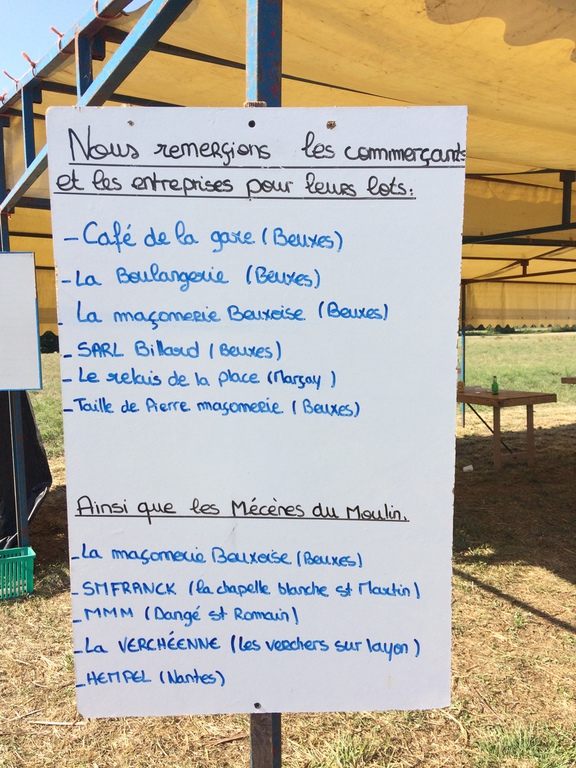 Nous remerçions les commerçants
et les entreprises pour leurs lots:
- Café de la gare (Beuxes)
- La Boulangerie (Beuxes)
- La maçonnerie Beuxoise (Beuxes)
- SARL Billard (Beuxes)
- Le relais de la place (Marçay)
- Taille de Pierre maçonnerie (Beuxes)
Ainsi que les Mécènes du Moulin.
- La maçonnerie Beuxoise (Beuxes)
- SMFRANCK (la chapelle blanche st Martin)
- MMM (Dangé st Romain)
- La VERCHÉENNE (les verchers sur layon)
- HEMPEL (Nantes)